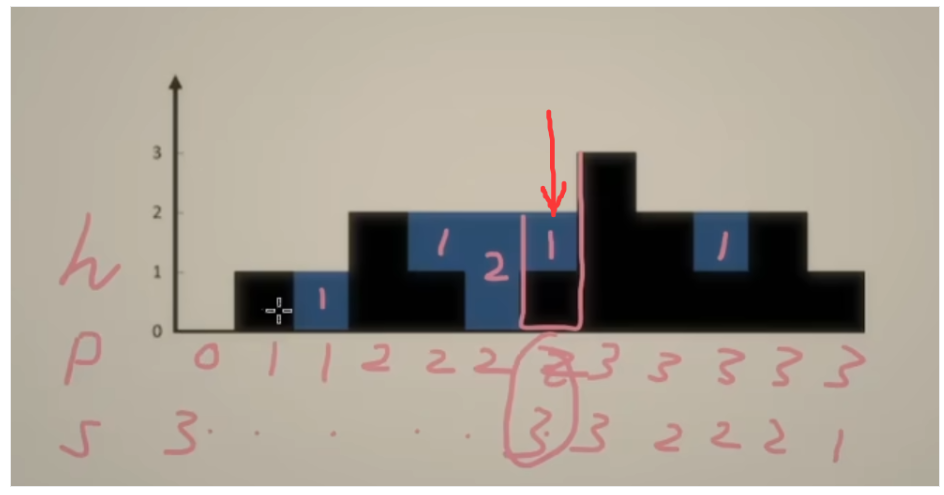 3
2
1
0
1
1
2
1
1
h
p 0 1 1 2 2 2 2 3 3 3 3 3
s 3 . . . . . 3 3 2 2 2 1